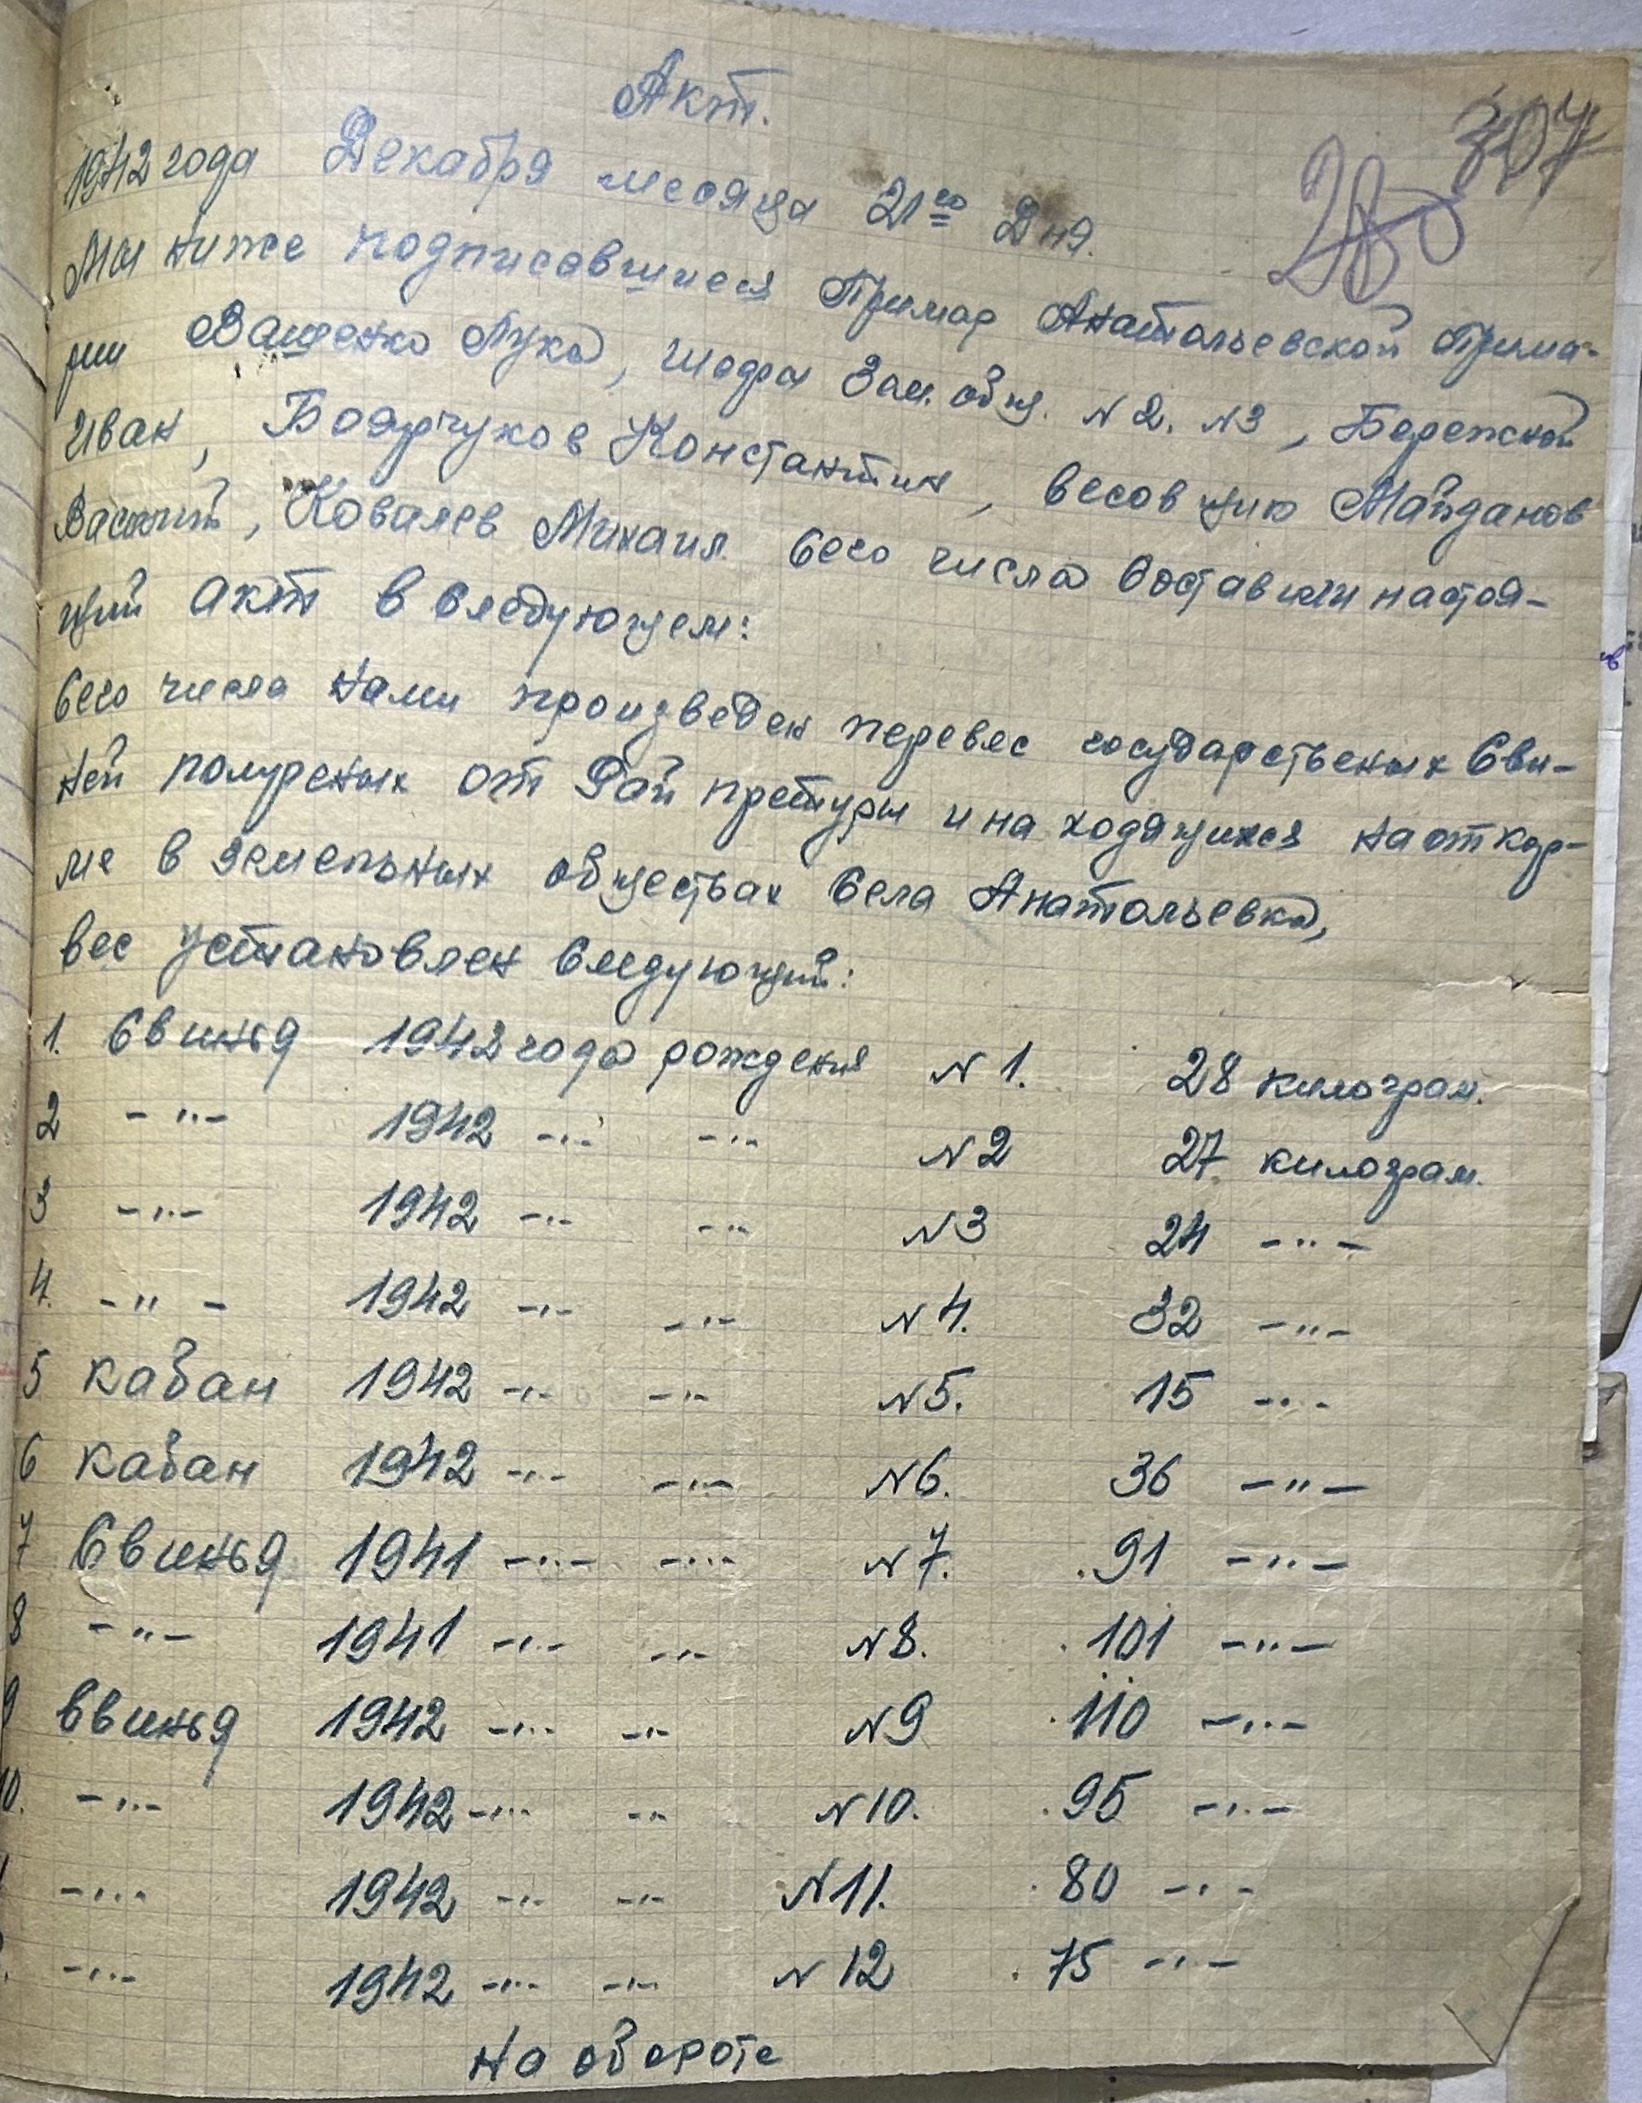 Акт.
307
28
1942 года Декабря месяца 21го Дня.
Мы ниже подписавшиеся Примар Анатольевской Прима-
рии Ващенко Лука, шефы Зем. общ. N2. N3, Бережной
Иван, Боярчуков Константин, весовщию Майданов
Василий, Ковалев Михаил. Сего числа Составили настоя-
щий акт в Следующем:
Сего числа нами произведен перевес государственых Сви-
ней полуреных от Рай претуры и на ходящихся на откор-
ме в земельных обществах Села Анатольевка,
вес установлен Следующий:
1. Свинья 1942 года рождения N1. 28 килограм.
2 -"- 1942 -"- -"- N2 27 килограм.
3 -"- 1942 -"- -"- N3 24 -"-
4. -"- 1942 -"- -"- N4. 32 -"-
5 кабан 1942 -"- -"- N5. 15 -"-
6 кабан 1942 -"- -"- N6. 36 -"-
7 Свинья 1941 -"- -"- N7. 91 -"-
8 -"- 1941 -"- -"- N8. 101 -"-
9 Свинья 1942 -"- -"- N9 110 -"-
10. -"- 1942 -"- -"- N10. 95 -"-
-"- 1942 -"- -"- N11. 80 -"-
-"- 1942 -"- -"- N12 75 -"-
На обороте